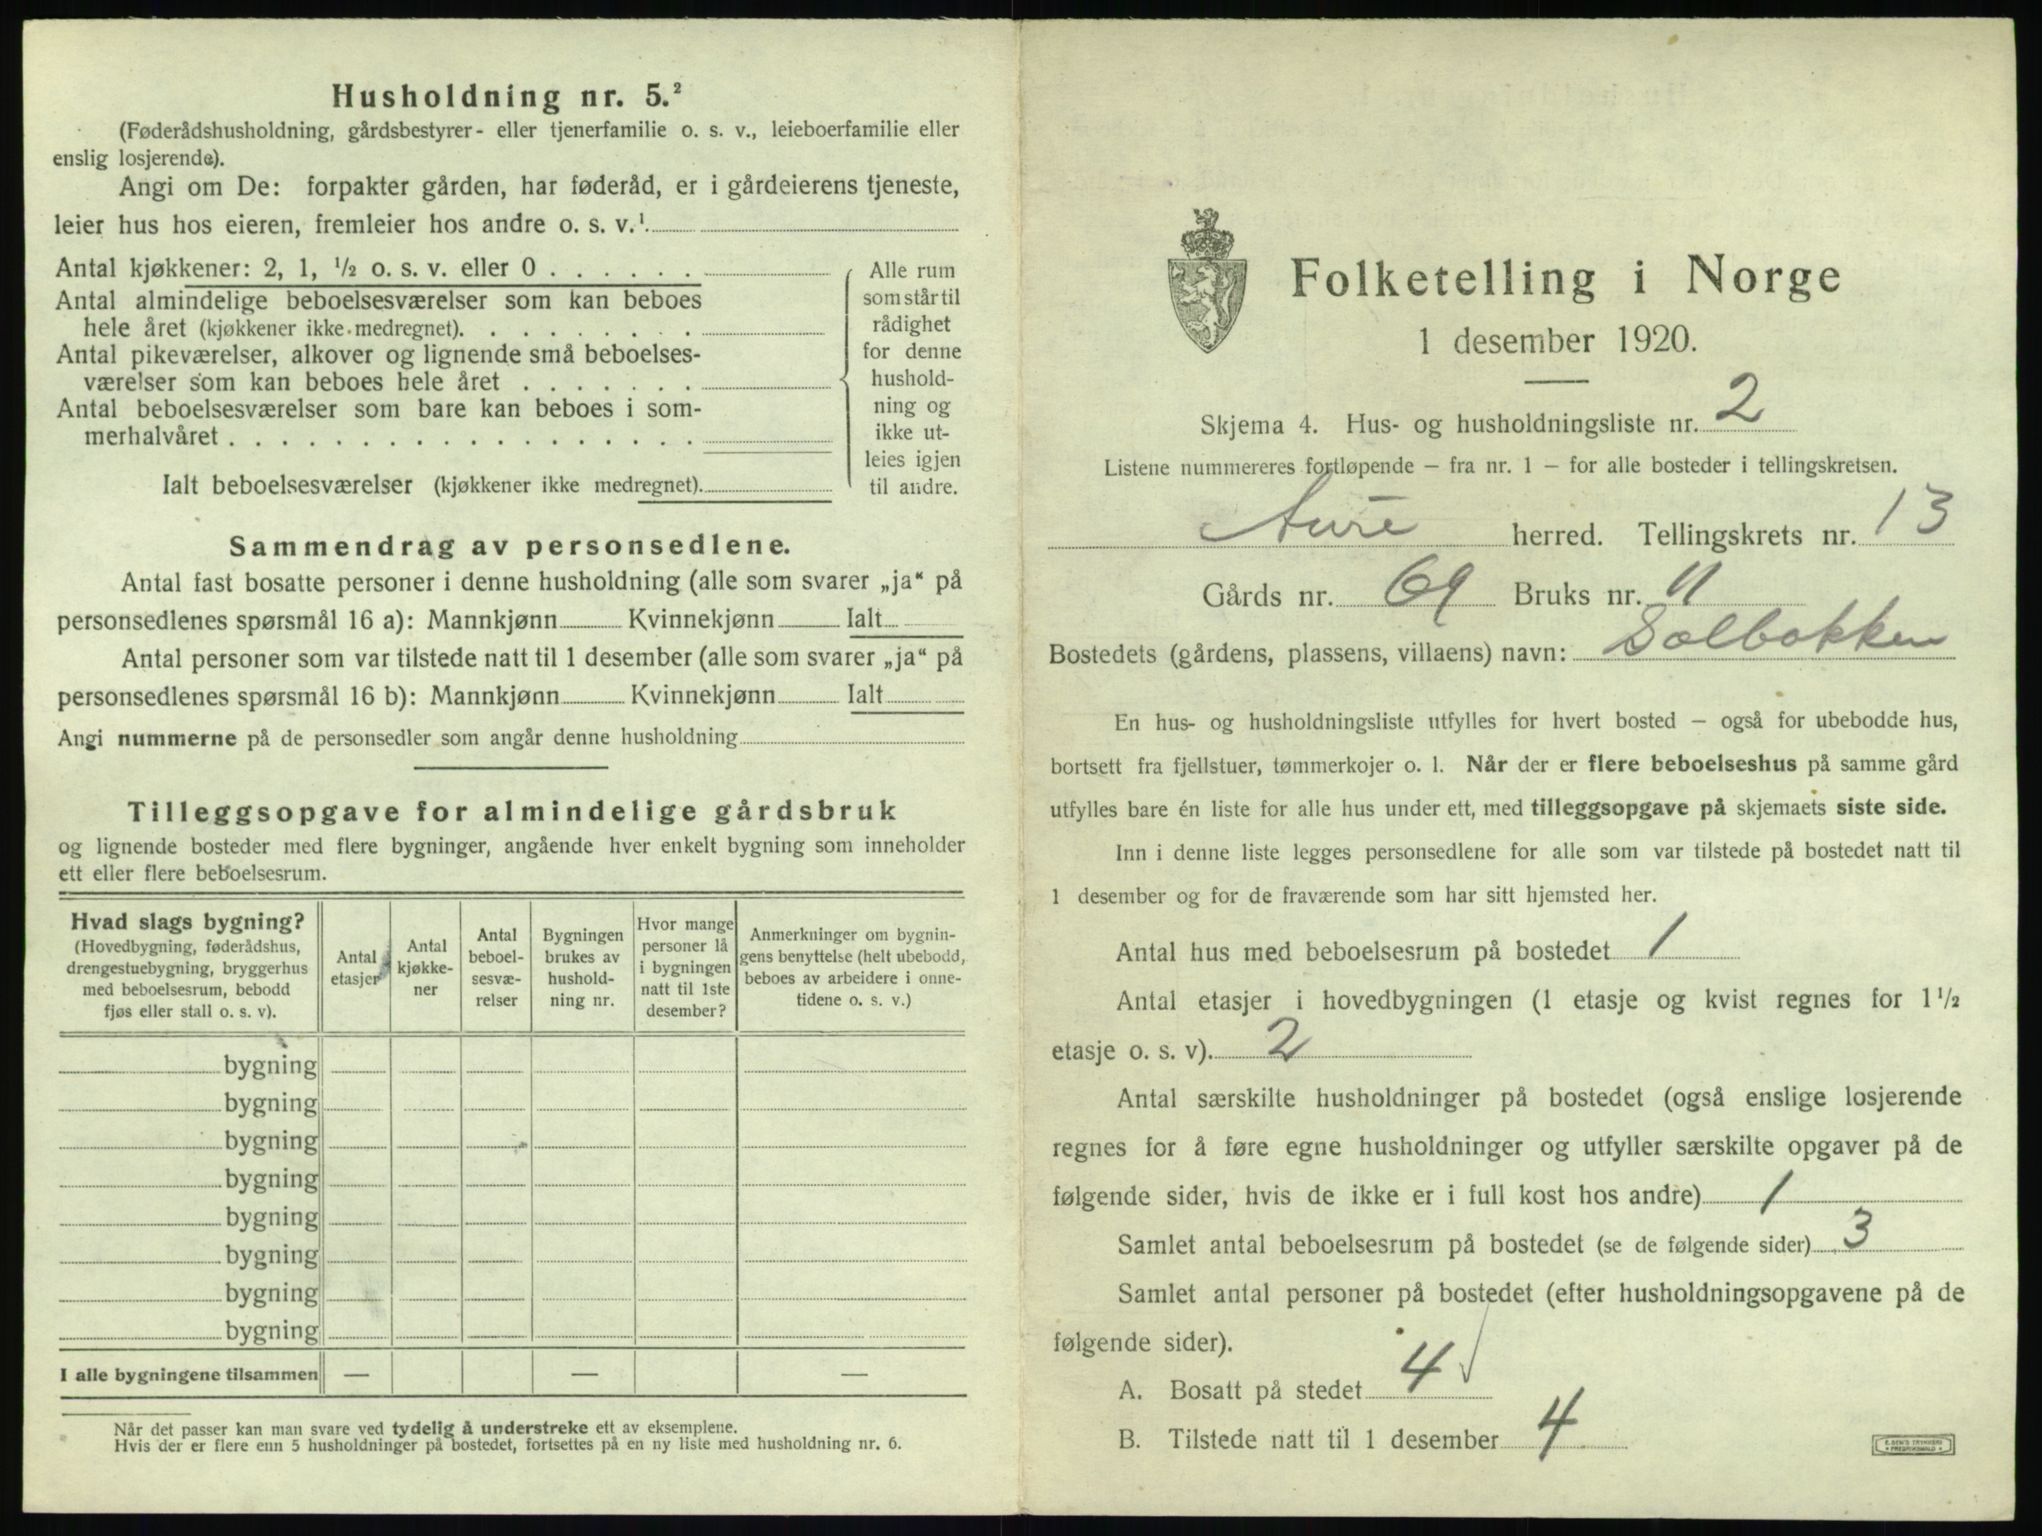 Husholdning nr. 5.²
(Føderådshusholdning, gårdsbestyrer- eller tjenerfamilie o. s. v., leieboerfamilie eller
enslig losjerende).
Angi om De: forpakter gården, har føderåd, er i gårdeierens tjeneste,
leier hus hos eieren, fremleier hos andre o. s. v.¹
Antal kjøkkener: 2, 1, ½ o. s. v. eller 0 . . . . . .
Antal almindelige beboelsesværelser som kan beboes
hele året (kjøkkener ikke medregnet). . . . . . . . .
Antal pikeværelser, alkover og lignende små beboelses-
værelser som kan beboes hele året . . . . . . .
Antal beboelsesværelser som bare kan beboes i som-
merhalvåret . . . . . . . . . . . . . . . . . .
Ialt beboelsesværelser (kjøkkener ikke medregnet).
Alle rum
som står til
rådighet
for denne
hushold-
ning og
ikke ut-
leies igjen
til andre.
Sammendrag av personsedlene.
Antal fast bosatte personer i denne husholdning (alle som svarer „ja“ på
personsedlenes spørsmål 16 a): Mannkjønn Kvinnekjønn Ialt
Antal personer som var tilstede natt til 1 desember (alle som svarer „ja“ på
personsedlenes spørsmål 16 b): Mannkjønn Kvinnekjønn Ialt
Angi nummerne på de personsedler som angår denne husholdning
Tilleggsopgave for almindelige gårdsbruk
og lignende bosteder med flere bygninger, angående hver enkelt bygning som inneholder
ett eller flere beboelsesrum.
Hvad slags bygning?
(Hovedbygning, føderådshus,
drengestuebygning, bryggerhus
med beboelsesrum, bebodd
fjøs eller stall o. s. v).
Antal
etasjer
Antal
kjøkke-
ner
Antal
beboel-
sesvæ-
relser
Bygningen
brukes av
hushold-
ning nr.
Hvor mange
personer lå
i bygningen
natt til 1ste
desember?
Anmerkninger om bygnin-
gens benyttelse (helt ubebodd,
beboes av arbeidere i onne-
tidene o. s. v.)
bygning
bygning
bygning
bygning
bygning
bygning
bygning
bygning
I alle bygningene tilsammen — — —
Når det passer kan man svare ved tydelig å understreke ett av eksemplene.
Hvis der er flere enn 5 husholdninger på bostedet, fortsettes på en ny liste med husholdning nr. 6.
Folketelling i Norge
1 desember 1920.
Skjema 4. Hus- og husholdningsliste nr. 2
Listene nummereres fortløpende – fra nr. 1 – for alle bosteder i tellingskretsen.
Aure herred. Tellingskrets nr. 13
Gårds nr. 69 Bruks nr. 11
Bostedets (gårdens, plassens, villaens) navn: Solbakken
En hus- og husholdningsliste utfylles for hvert bosted – også for ubebodde hus,
bortsett fra fjellstuer, tømmerkojer o. l. Når der er flere beboelseshus på samme gård
utfylles bare én liste for alle hus under ett, med tilleggsopgave på skjemaets siste side.
Inn i denne liste legges personsedlene for alle som var tilstede på bostedet natt til
1 desember og for de fraværende som har sitt hjemsted her.
Antal hus med beboelsesrum på bostedet 1
Antal etasjer i hovedbygningen (1 etasje og kvist regnes for 1½
etasje o. s. v). 2
Antal særskilte husholdninger på bostedet (også enslige losjerende
regnes for å føre egne husholdninger og utfyller særskilte opgaver på de
følgende sider, hvis de ikke er i full kost hos andre) 1
Samlet antal beboelsesrum på bostedet (se de følgende sider) 3
Samlet antal personer på bostedet (efter husholdningsopgavene på de
følgende sider).
A. Bosatt på stedet 4 ✓
B. Tilstede natt til 1 desember 4